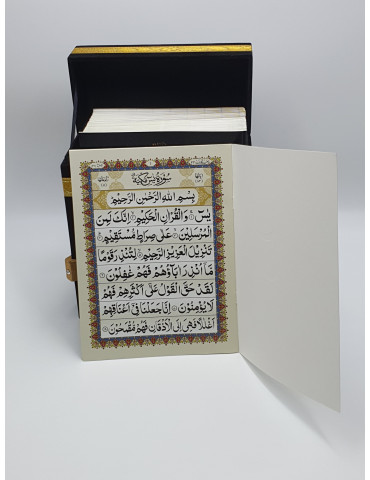 سُوْرَةُ يٰسٓ مَكِّيَّةٌ
بِسْمِ اللّٰهِ الرَّحْمٰنِ الرَّحِيْمِ
يٰسٓ وَالْقُرْاٰنِ الْحَكِيْمِ اِنَّكَ لَمِنَ
الْمُرْسَلِيْنَ عَلٰى صِرَاطٍ مُّسْتَقِيْمٍ
تَنْزِيْلَ الْعَزِيْزِ الرَّحِيْمِ لِتُنْذِرَ قَوْمًا
مَّاۤ اُنْذِرَ اٰبَآؤُهُمْ فَهُمْ غٰفِلُوْنَ
لَقَدْ حَقَّ الْقَوْلُ عَلٰۤى اَكْثَرِهِمْ فَهُمْ
لَا يُؤْمِنُوْنَ اِنَّا جَعَلْنَا فِيْۤ اَعْنَاقِهِمْ
اَغْلٰلًا فَهِيَ اِلَى الْاَذْقَانِ فَهُمْ مُّقْمَحُوْنَ